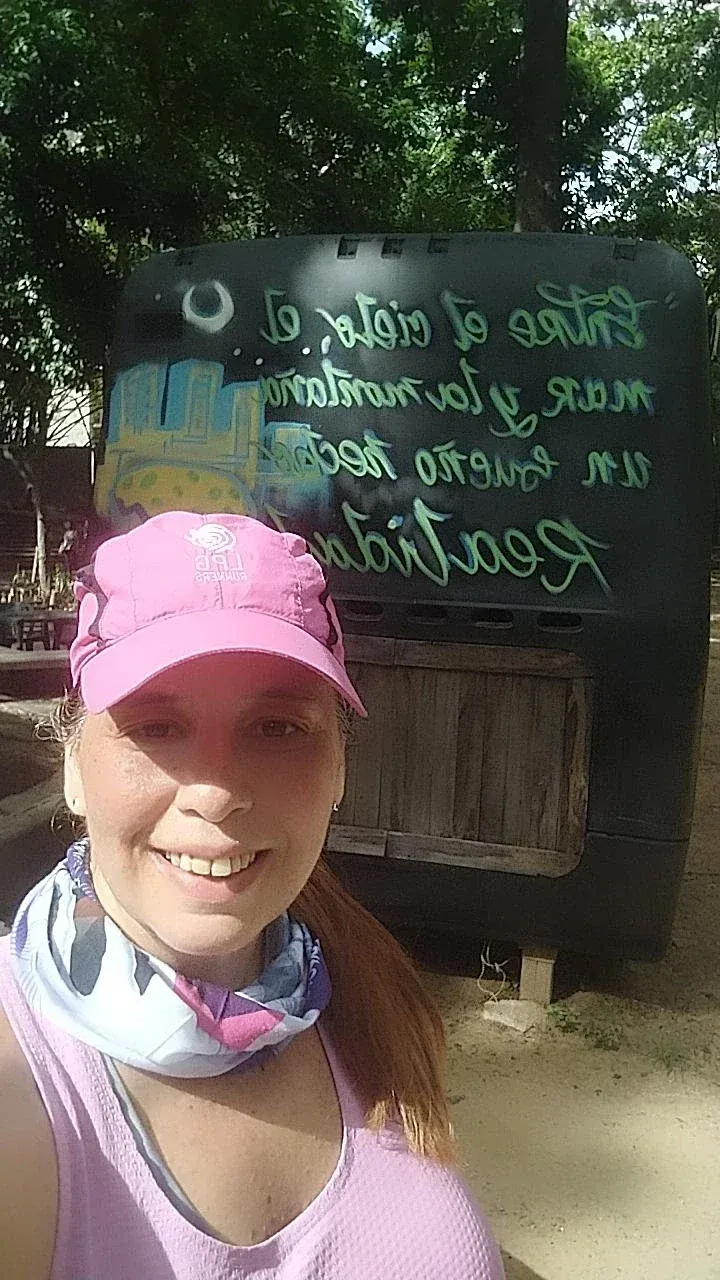 Entre el cielo, el
mar y la montaña
un sueño hecho
Realida
LPG
RUNNERS